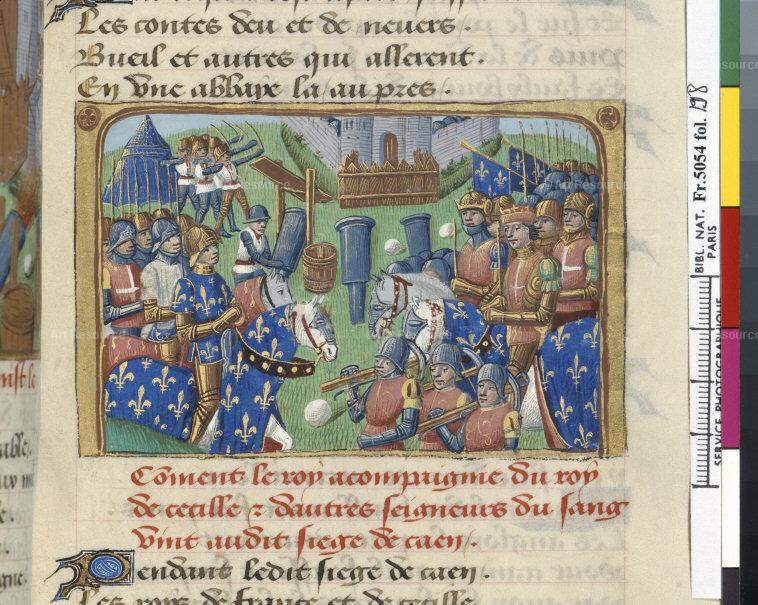 Les contes deu et de nevers.
Bueil et autres qui allerent.
En une abbaye la au pres.
Coment le roy acompaigne du roy
de cecille z dautres seigneurs du sang
vint audit siege de caen.
Pendant ledit siege de caen.
Les roys de france et de cecille
BIBL. NAT. Fr. 5054 fol. 198
PARIS
SERVICE PHOTOGRAPHIQUE